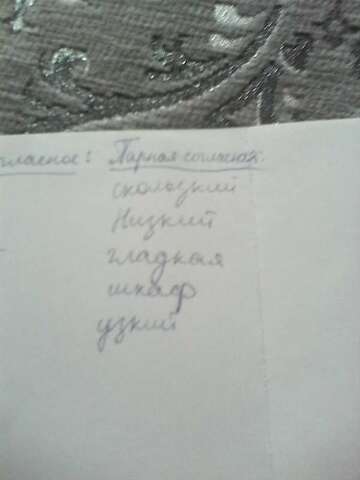 гласное: Парная согласная.
скользкий
Низкий
гладкая
шкаф
узкий